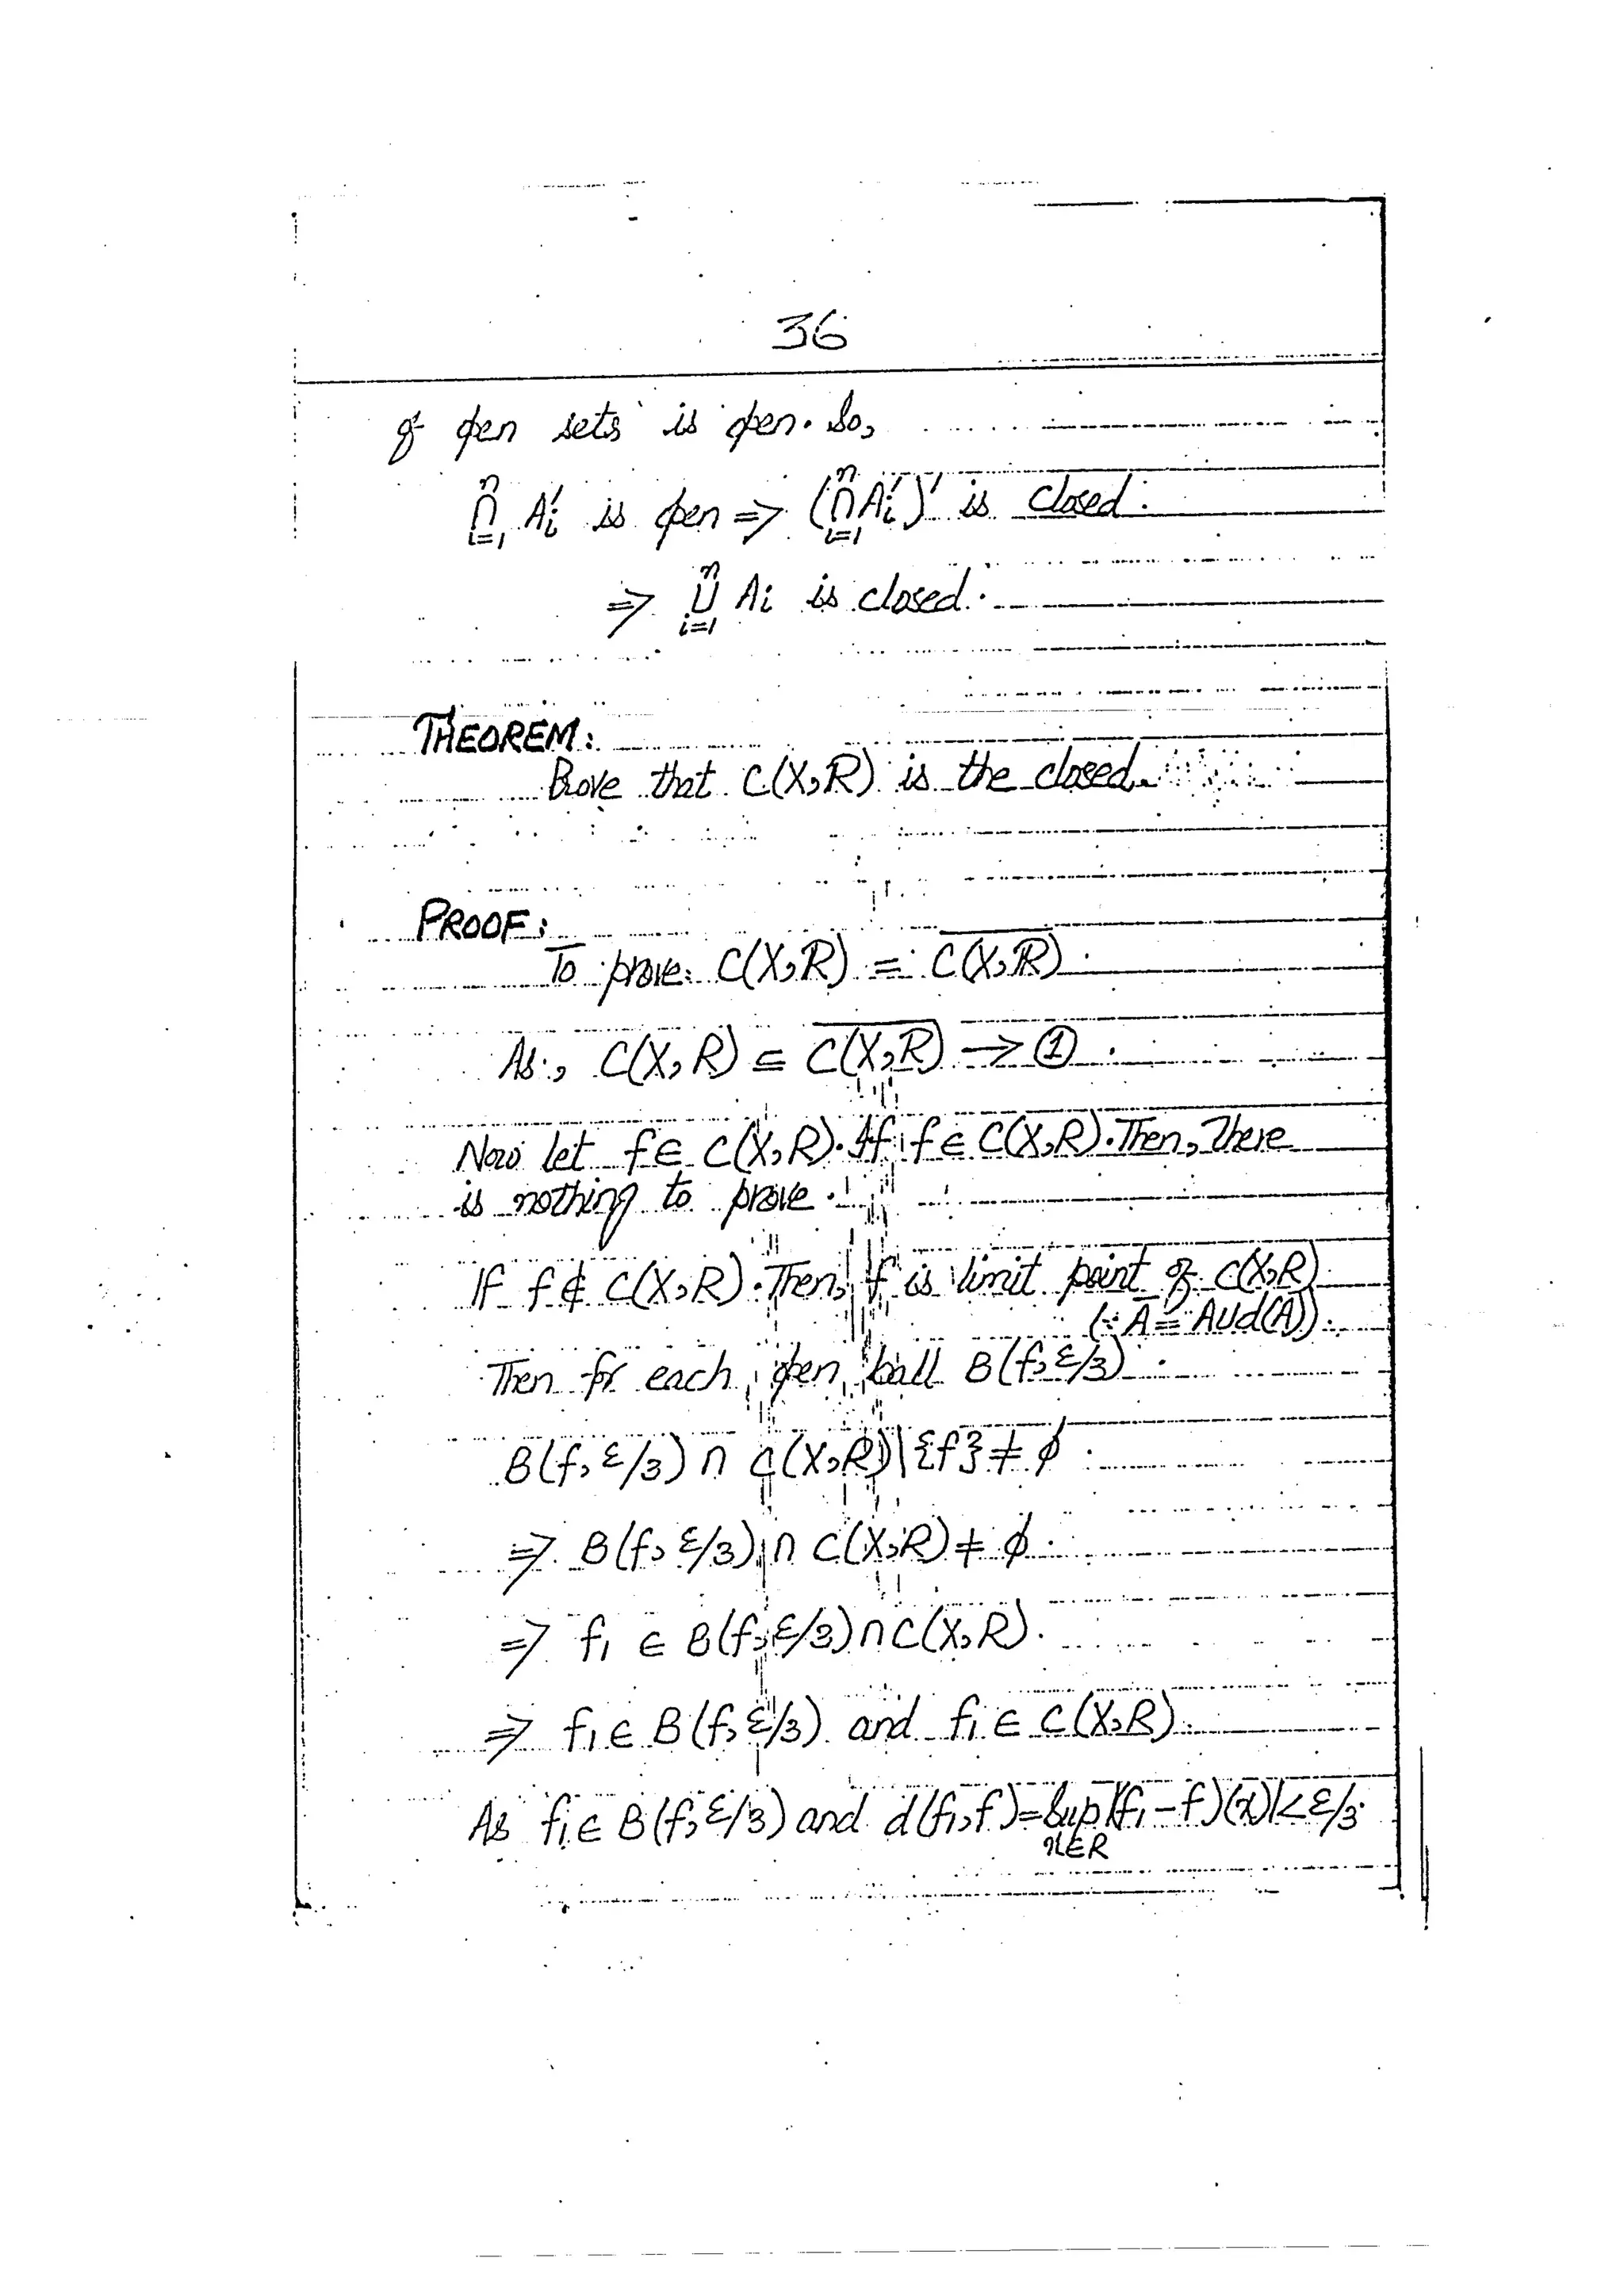 36
of open sets is open. So,
n⋂i=1 Ai' is open ⇒ (n⋂i=1 Ai')' is closed.
⇒ n⋃i=1 Ai is closed.
THEOREM:
Prove that C(X,R) is the closed.
PROOF:
To prove: C(X,R) = \overline{C(X,R)}.
As, C(X,R) ⊆ \overline{C(X,R)} → ①.
Now let f ∈ \overline{C(X,R)}. If f ∈ C(X,R). Then, There
is nothing to prove.
If f ∉ C(X,R). Then, f is limit point of C(X,R)
(∵ \overline{A} = A∪d(A)).
Then for each open ball B(f, ε/3).
B(f, ε/3) ∩ C(X,R)\{f} ≠ φ.
⇒ B(f, ε/3) ∩ C(X,R) ≠ φ.
⇒ f₁ ∈ B(f, ε/3) ∩ C(X,R).
⇒ f₁ ∈ B(f, ε/3) and f₁ ∈ C(X,R).
As f₁ ∈ B(f, ε/3) and d(f₁,f) = Sup |(f₁ - f)(x)| < ε/3.
x∈R